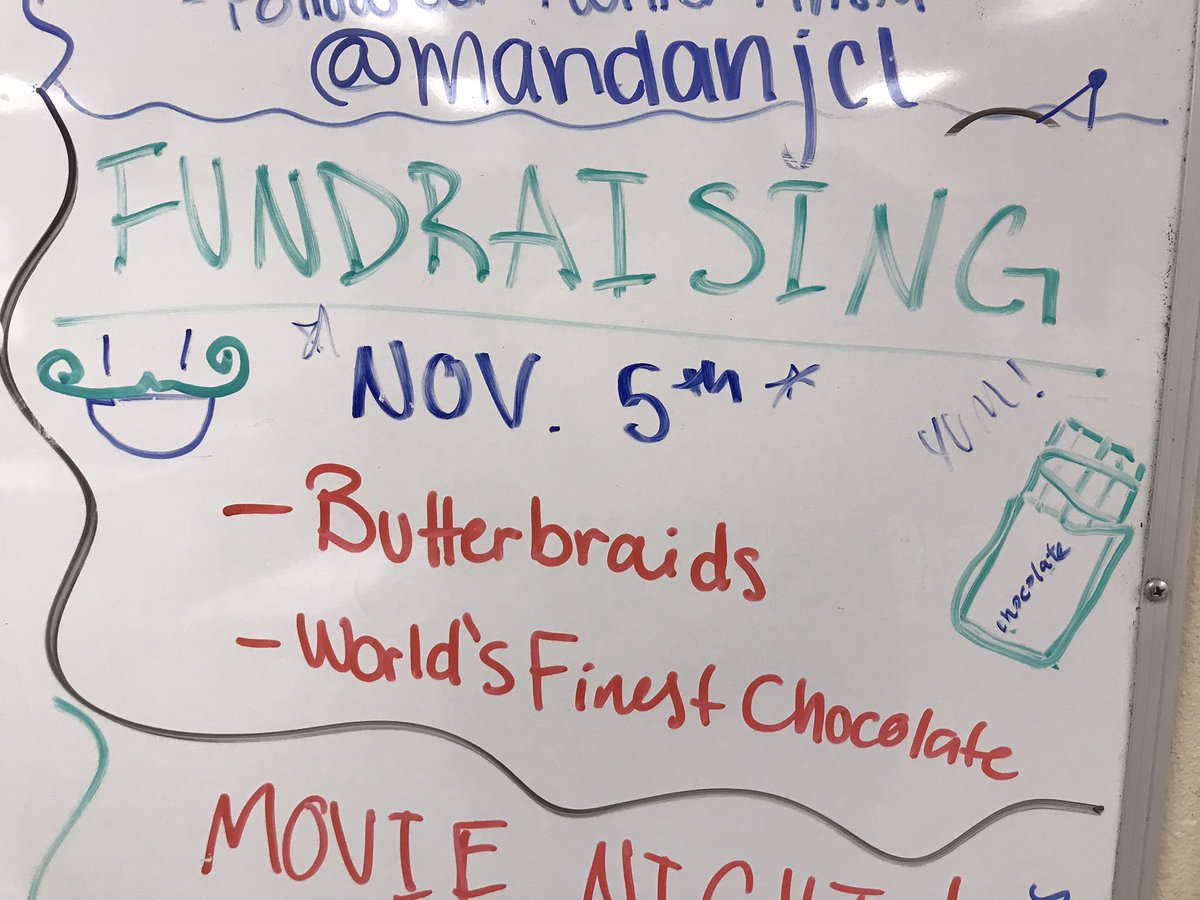 @mandanjcl
FUNDRAISING
* NOV. 5th *
YUM!
- Butterbraids
chocolate
- World's Finest Chocolate
MOVIE NIGHT